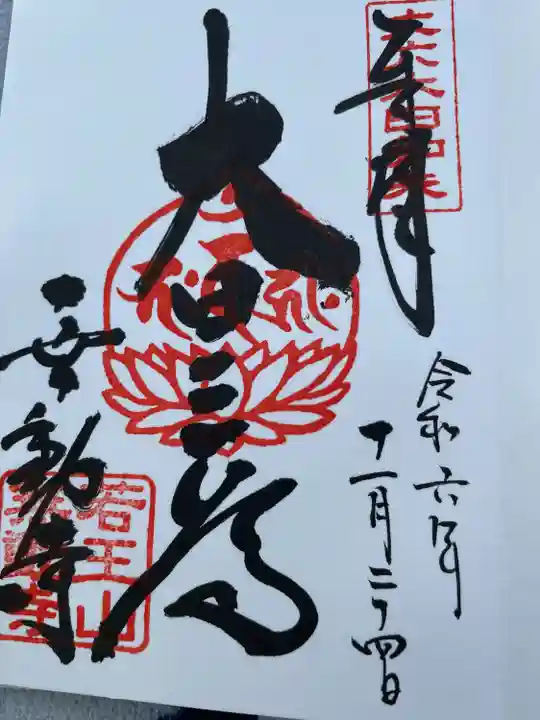 奉拝
令和六年
十一月二十四日
大日三尊
無動寺
若王山
無動寺